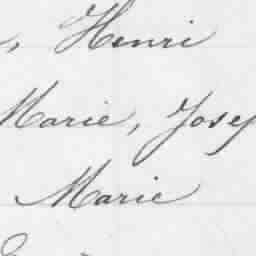 , Henri
Marie, Josep
Marie